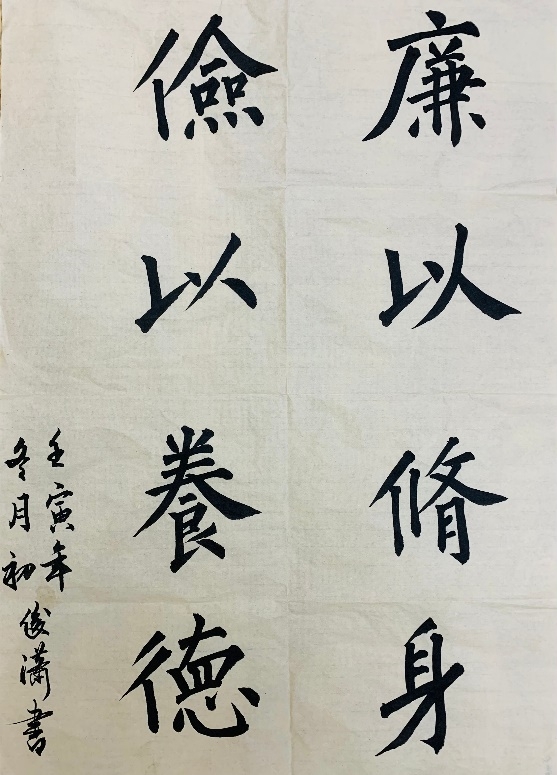 廉以脩身
儉以養德
壬寅年
冬月初俊瀟書